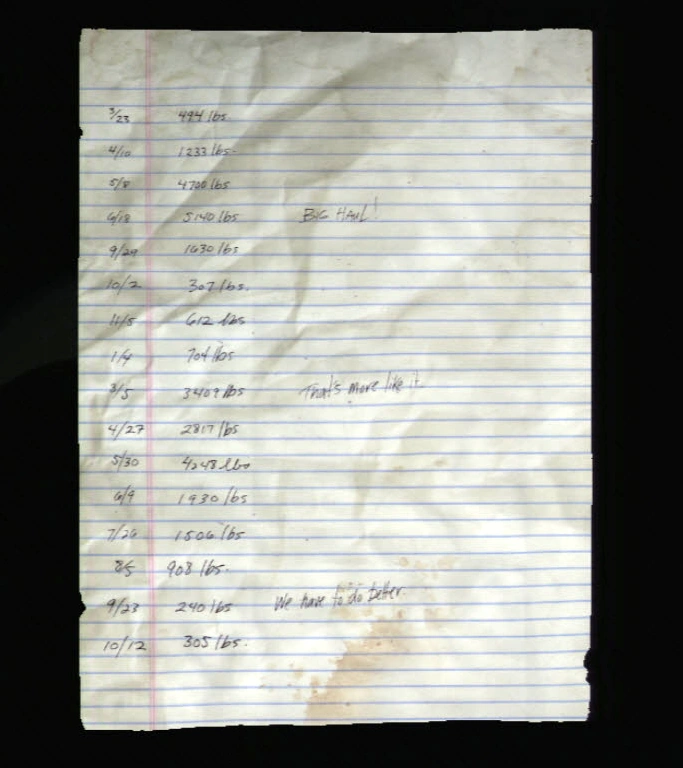 3/23 494 lbs
4/10 1233 lbs.
5/8 4700 lbs
6/18 5140 lbs BIG HAUL!
9/29 1630 lbs
10/2 307 lbs.
11/5 612 lbs
1/4 704 lbs
3/5 3409 lbs That's more like it
4/27 2817 lbs
5/30 4248 lbs
6/9 1930 lbs
7/26 1506 lbs
8/5 908 lbs.
9/23 240 lbs We have to do better.
10/12 305 lbs.